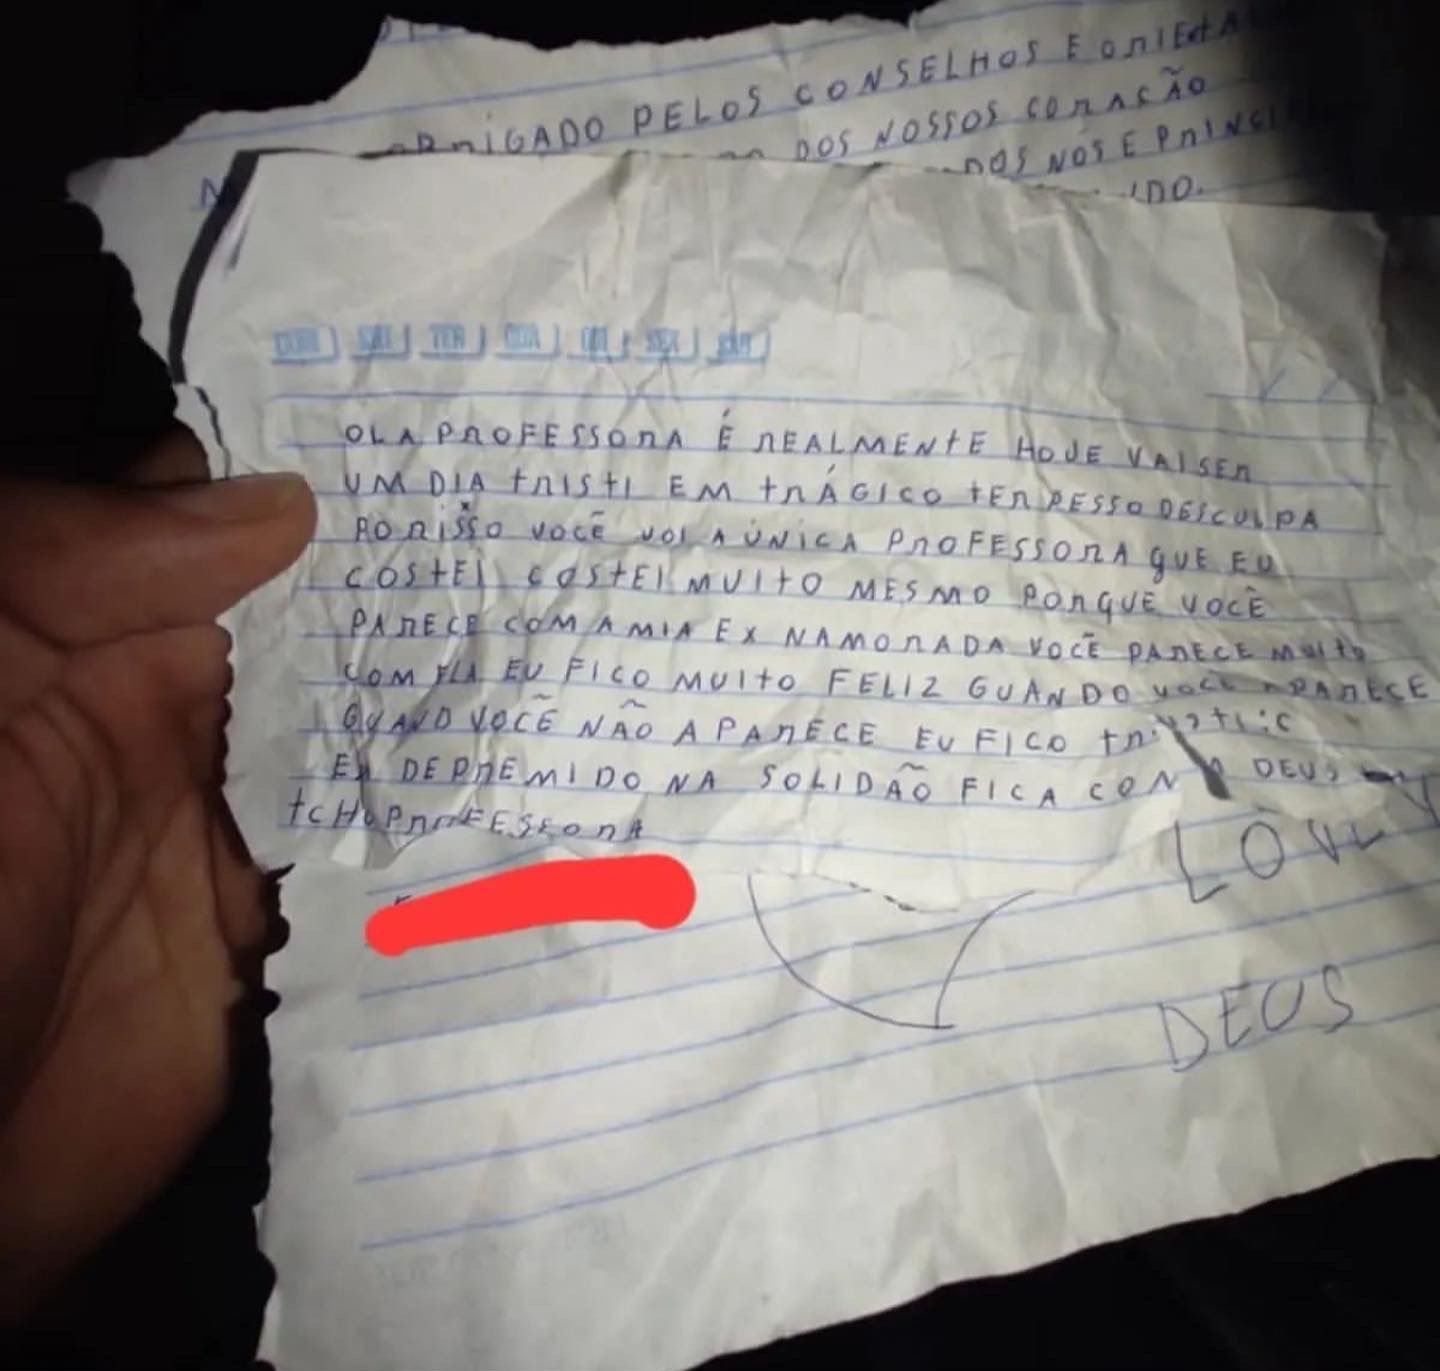 OBRIGADO PELOS CONSELHOS E
DOS NOSSOS CORASÃO
NÓS E
DOM SEG TER QUA QUI SEX SAB
OLA PROFESSORA É REALMENTE HOJE VAI SER
UM DIA TRISTI EM TRÁGICO TER PESSO DESCULPA
POR ISSO VOCÊ VOI A ÚNICA PROFESSORA QUE EU
COSTEI COSTEI MUITO MESMO PORQUE VOCÊ
PARECE COM A MIA EX NAMORADA VOCÊ PARECE MUITO
COM ELA EU FICO MUITO FELIZ GUANDO VOCE APARECE
GUAND VOCÊ NÃO APARECE EU FICO
EM DEPREMIDO NA SOLIDÃO FICA CON DEUS
TCHO PROFESSORA
DEUS